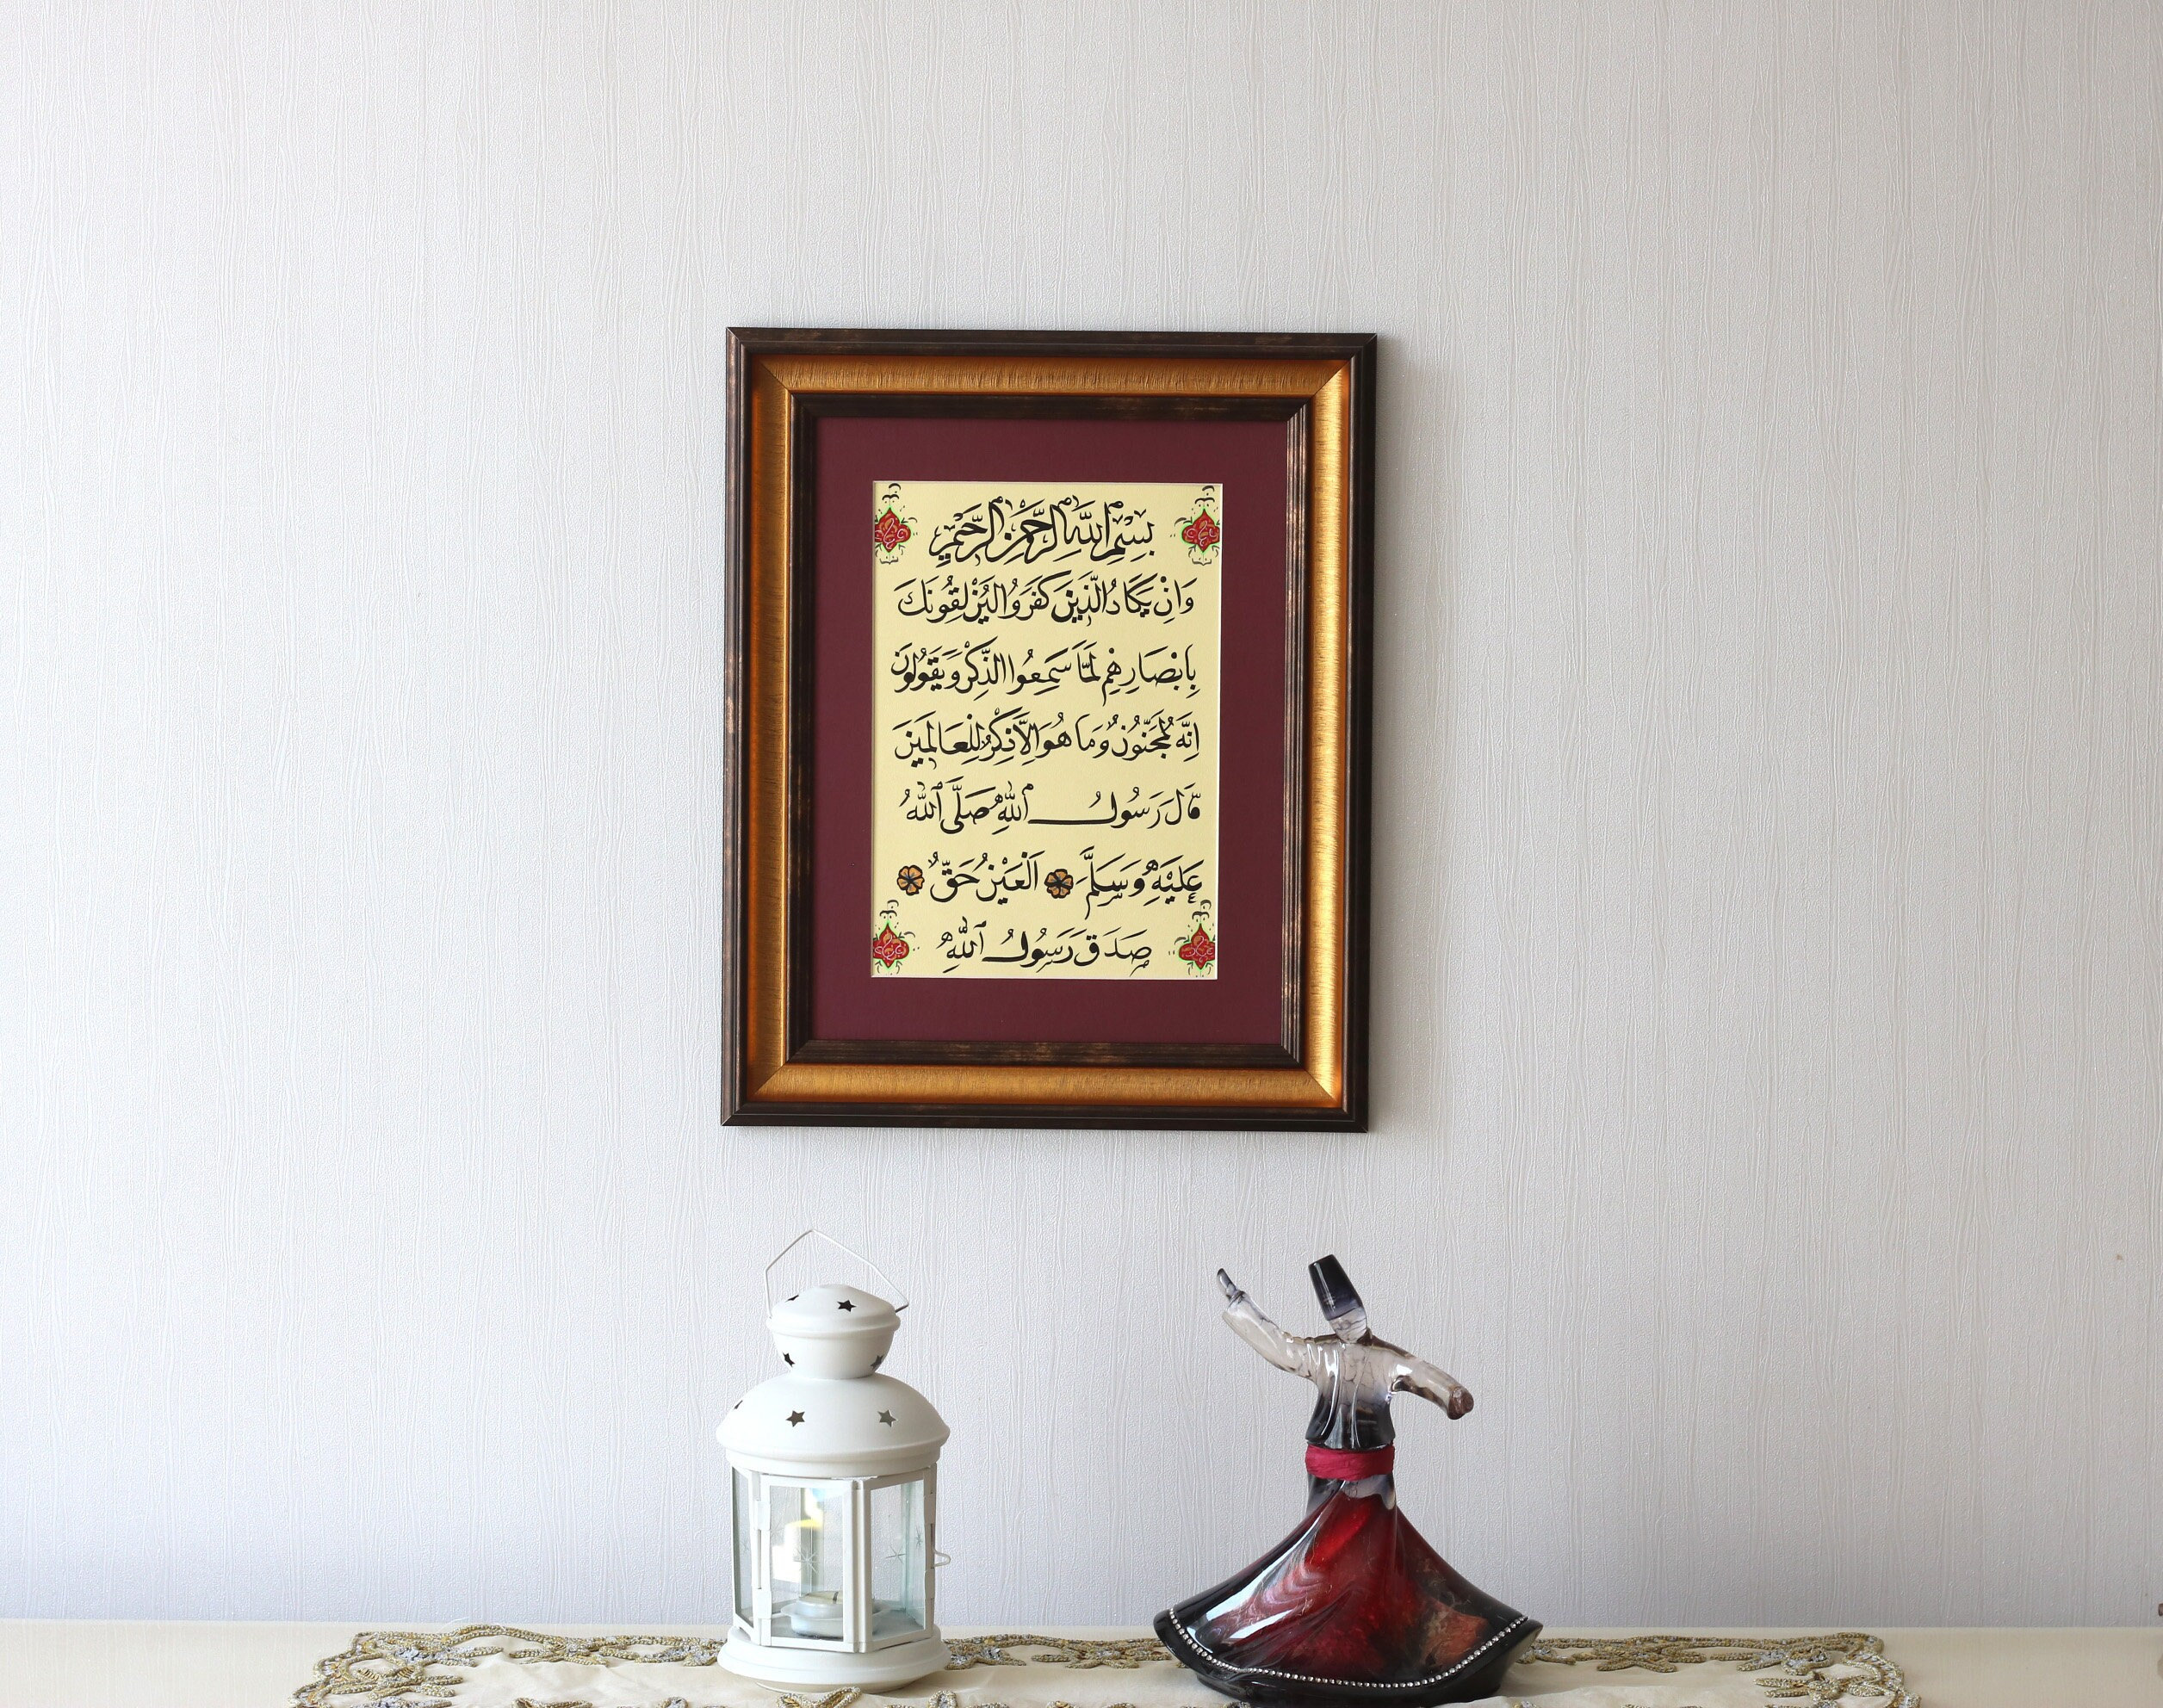 بِسْمِ اللهِ الرَّحْمٰنِ الرَّحِيْمِ
وَاِنْ يَكَادُ الَّذِينَ كَفَرُوا لَيُزْلِقُونَكَ
بِاَبْصَارِهِمْ لَمَّا سَمِعُوا الذِّكْرَ وَيَقُولُونَ
اِنَّهُ لَمَجْنُونٌ وَمَا هُوَ اِلَّا ذِكْرٌ لِلْعَالَمِينَ
قَالَ رَسُولُ اللهِ صَلَّى اللهُ
عَلَيْهِ وَسَلَّمَ اَلْعَيْنُ حَقٌّ
صَدَقَ رَسُولُ اللهِ